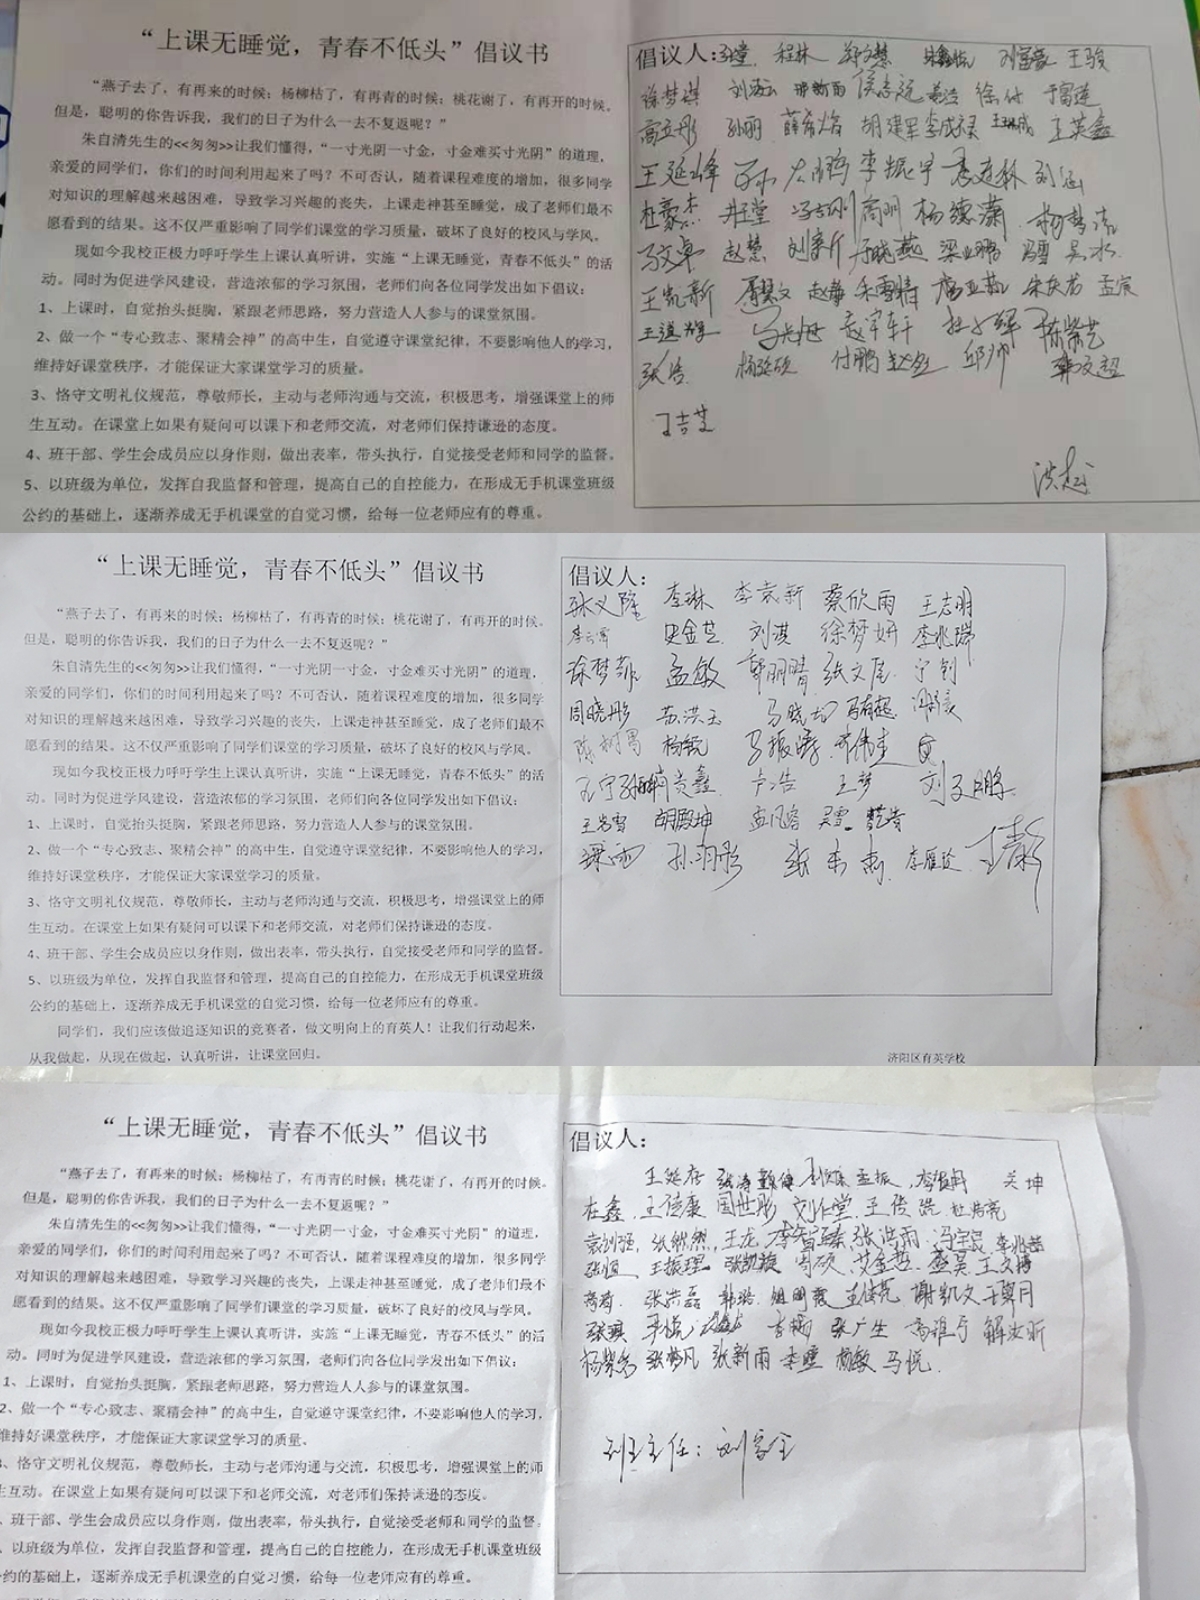 “上课无睡觉，青春不低头”倡议书
“燕子去了，有再来的时候；杨柳枯了，有再青的时候；桃花谢了，有再开的时候。
但是，聪明的你告诉我，我们的日子为什么一去不复返呢？”
朱自清先生的<<匆匆>>让我们懂得，“一寸光阴一寸金，寸金难买寸光阴”的道理，
亲爱的同学们，你们的时间利用起来了吗？不可否认，随着课程难度的增加，很多同学
对知识的理解越来越困难，导致学习兴趣的丧失，上课走神甚至睡觉，成了老师们最不
愿看到的结果。这不仅严重影响了同学们课堂的学习质量，破坏了良好的校风与学风。
现如今我校正极力呼吁学生上课认真听讲，实施“上课无睡觉，青春不低头”的活
动。同时为促进学风建设，营造浓郁的学习氛围，老师们向各位同学发出如下倡议：
1、上课时，自觉抬头挺胸，紧跟老师思路，努力营造人人参与的课堂氛围。
2、做一个“专心致志、聚精会神”的高中生，自觉遵守课堂纪律，不要影响他人的学习，
维持好课堂秩序，才能保证大家课堂学习的质量。
3、恪守文明礼仪规范，尊敬师长，主动与老师沟通与交流，积极思考，增强课堂上的师
生互动。在课堂上如果有疑问可以课下和老师交流，对老师们保持谦逊的态度。
4、班干部、学生会成员应以身作则，做出表率，带头执行，自觉接受老师和同学的监督。
5、以班级为单位，发挥自我监督和管理，提高自己的自控能力，在形成无手机课堂班级
公约的基础上，逐渐养成无手机课堂的自觉习惯，给每一位老师应有的尊重。
倡议人： 程林 郑文慧 刘富豪 王骏
徐梦琪 侯志远 徐付 于富莲
高立彤 孙丽 胡建军 李成禄 王英鑫
王延峰 李振宇 袁建林 刘涵
杜豪杰 冯吉刚 高明 杨德潇 杨梦洁
赵慧 刘奕斤 于晓燕 梁亚鹏 吴冰
王凯新 屠慧文 赵静 朱雪晴 孟宸
袁宇轩 陈紫艺
张浩 杨晓硕 付鹏 邱帅 韩文超
丁吉芝
洪超
“上课无睡觉，青春不低头”倡议书
“燕子去了，有再来的时候；杨柳枯了，有再青的时候；桃花谢了，有再开的时候。
但是，聪明的你告诉我，我们的日子为什么一去不复返呢？”
朱自清先生的<<匆匆>>让我们懂得，“一寸光阴一寸金，寸金难买寸光阴”的道理，
亲爱的同学们，你们的时间利用起来了吗？不可否认，随着课程难度的增加，很多同学
对知识的理解越来越困难，导致学习兴趣的丧失，上课走神甚至睡觉，成了老师们最不
愿看到的结果。这不仅严重影响了同学们课堂的学习质量，破坏了良好的校风与学风。
现如今我校正极力呼吁学生上课认真听讲，实施“上课无睡觉，青春不低头”的活
动。同时为促进学风建设，营造浓郁的学习氛围，老师们向各位同学发出如下倡议：
1、上课时，自觉抬头挺胸，紧跟老师思路，努力营造人人参与的课堂氛围。
2、做一个“专心致志、聚精会神”的高中生，自觉遵守课堂纪律，不要影响他人的学习，
维持好课堂秩序，才能保证大家课堂学习的质量。
3、恪守文明礼仪规范，尊敬师长，主动与老师沟通与交流，积极思考，增强课堂上的师
生互动。在课堂上如果有疑问可以课下和老师交流，对老师们保持谦逊的态度。
4、班干部、学生会成员应以身作则，做出表率，带头执行，自觉接受老师和同学的监督。
5、以班级为单位，发挥自我监督和管理，提高自己的自控能力，在形成无手机课堂班级
公约的基础上，逐渐养成无手机课堂的自觉习惯，给每一位老师应有的尊重。
同学们，我们应该做追逐知识的竞赛者，做文明向上的育英人！让我们行动起来，
从我做起，从现在做起，认真听讲，让课堂回归。
倡议人：
张义隆 李琳 李袁新 蔡欣雨 王志明
史金芝 刘淇 徐梦妍 李兆瑞
徐梦菲 孟敏 郭丽晴 张文尾 宁钊
周晓彤 苏洪玉 马晓龙 马有超
杨毓 马振涛
卢浩 王梦 刘子鹏
胡殿坤 吴雪
梁雨 孙羽彤 李雁欣
济阳区育英学校
“上课无睡觉，青春不低头”倡议书
“燕子去了，有再来的时候；杨柳枯了，有再青的时候；桃花谢了，有再开的时候。
但是，聪明的你告诉我，我们的日子为什么一去不复返呢？”
朱自清先生的<<匆匆>>让我们懂得，“一寸光阴一寸金，寸金难买寸光阴”的道理，
亲爱的同学们，你们的时间利用起来了吗？不可否认，随着课程难度的增加，很多同学
对知识的理解越来越困难，导致学习兴趣的丧失，上课走神甚至睡觉，成了老师们最不
愿看到的结果。这不仅严重影响了同学们课堂的学习质量，破坏了良好的校风与学风。
现如今我校正极力呼吁学生上课认真听讲，实施“上课无睡觉，青春不低头”的活
动。同时为促进学风建设，营造浓郁的学习氛围，老师们向各位同学发出如下倡议：
1、上课时，自觉抬头挺胸，紧跟老师思路，努力营造人人参与的课堂氛围。
2、做一个“专心致志、聚精会神”的高中生，自觉遵守课堂纪律，不要影响他人的学习，
维持好课堂秩序，才能保证大家课堂学习的质量。
、恪守文明礼仪规范，尊敬师长，主动与老师沟通与交流，积极思考，增强课堂上的师
生互动。在课堂上如果有疑问可以课下和老师交流，对老师们保持谦逊的态度。
、班干部、学生会成员应以身作则，做出表率，带头执行，自觉接受老师和同学的监督。
、以班级为单位，发挥自我监督和管理，提高自己的自控能力，在形成无手机课堂班级
约的基础上，逐渐养成无手机课堂的自觉习惯，给每一位老师应有的尊重。
倡议人：
王延存 张涛 孟振 关坤
杜鑫 王信康 国世彤 刘作堂 王传浩 杜浩亮
袁训强，张然然，王龙，李智臻，张浩雨，冯宇良，李兆喆
张恒 王振理 张凯旋 尚硕 艾金哲 盛昊 王文博
张洪磊 韩璐 王传亮 谢凯文 王翠月
张琪 李悦 吉楠 张广生 高淮宁 解汝昕
杨紫秀 张梦凡 张新雨 李瞳 杨敏 马悦
班主任：刘家全